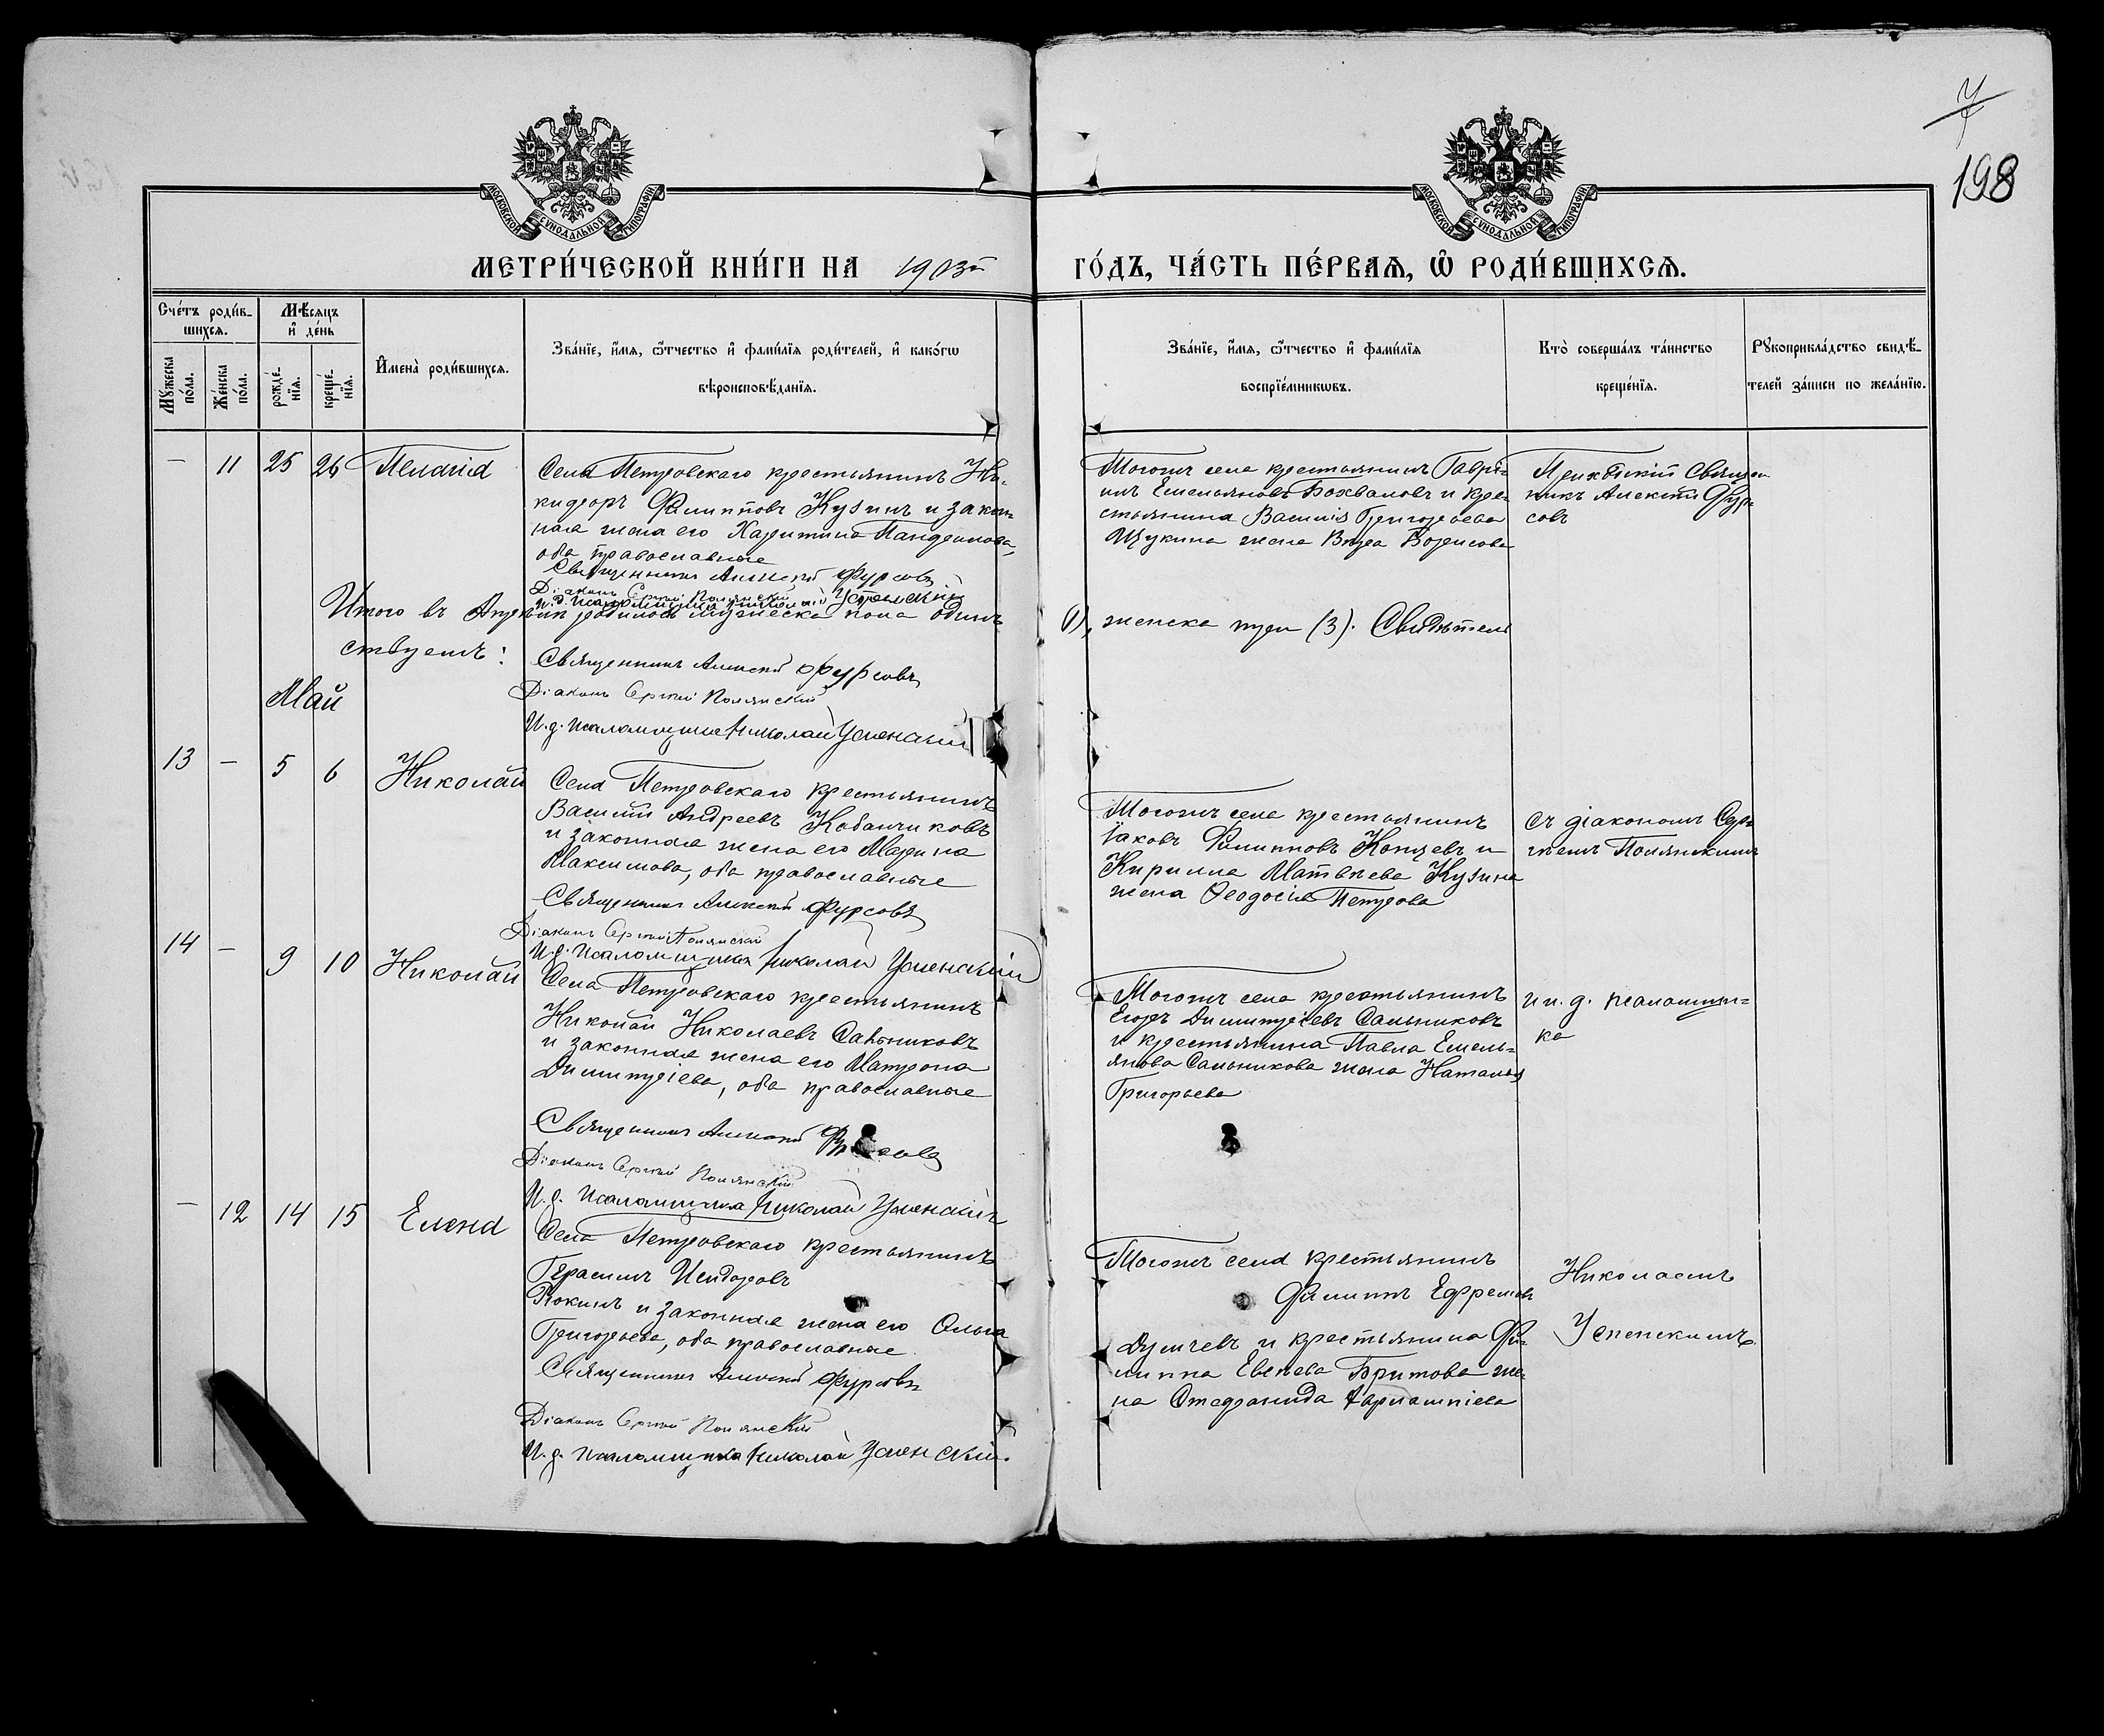 7
198
МОСКОВСКОЙ СѴНОДАЛЬНОЙ ТИПОГРАФІИ
МОСКОВСКОЙ СѴНОДАЛЬНОЙ ТИПОГРАФІИ
МЕТРИ́ЧЕСКОЙ КНИ́ГИ НА 1903й
ГО́ДЪ, ЧА́СТЬ ПЕ́РВАѦ, Ѽ РОДИ́ВШИХСѦ.
Сче́тъ роди́в-
шихсѧ.
Мꙋжеска по́ла.
Же́нска по́ла.
Мѣ́сѧцъ
и҆ де́нь
рожде́-
нїѧ.
креще́-
нїѧ.
И҆мена̀ роди́вшихсѧ.
Зва́нїе, и҆́мѧ, ѻ҆́тчество и҆ фами́лїѧ роди́телей, и҆ како́гѡ
вѣроисповѣ́данїѧ.
Зва́нїе, и҆́мѧ, ѻ҆́тчество и҆ фами́лїѧ
воспрїе́мникѡвъ.
Кто̀ соверша́лъ та́инство
креще́нїѧ.
Рꙋкоприкла́дство свидѣ́-
телей за́писи по жела́нїю.
— 11 25 26 Пелагія
Села Петровскаго крестьянинъ Ни-
кифоръ Филипповъ Кузинъ и закон-
ная жена его Харитина Панфилова,
оба православные
Священникъ Алексѣй Фурсовъ
Діаконъ Сергій Полянскій
И.д. псаломщика Николай Успенскій
Тогоже села крестьянинъ Гаврі-
илъ Емельяновъ Бохваловъ и кре-
стьянина Василія Григорьева
Щукина жена Вѣра Борисова
Приходскій Священ-
никъ Алексѣй Фур-
совъ
Итого въ Апрѣлѣ родилось мужеска пола одинъ
(1), женска три (3). Свидѣтель-
ствуемъ:
Священникъ Алексѣй Фурсовъ
Діаконъ Сергій Полянскій
И.д. псаломщика Николай Успенскій
Май
13 — 5 6 Николай
Села Петровскаго крестьянинъ
Василій Андреевъ Кобанчиковъ
и законная жена его Марина
Максимова, оба православные
Священникъ Алексѣй Фурсовъ
Діаконъ Сергій Полянскій
И.д. псаломщика Николай Успенскій
Тогоже села крестьянинъ
Іаковъ Филипповъ Копцевъ и
Кирилла Матвѣева Кузина
жена Ѳеодосія Петрова
съ діакономъ Сер-
гіемъ Полянскимъ
14 — 9 10 Николай
Села Петровскаго крестьянинъ
Николай Николаевъ Сальниковъ
и законная жена его Матрона
Димитріева, оба православные
Священникъ Алексѣй Фурсовъ
Діаконъ Сергій Полянскій
И.д. псаломщика Николай Успенскій
Тогоже села крестьянинъ
Егоръ Димитріевъ Сальниковъ
и крестьянина Павла Емель-
янова Сальникова жена Наталья
Григорьева
и и. д. псаломщи-
ка
— 12 14 15 Елена
Села Петровскаго крестьянинъ
Герасимъ Исидоровъ
Фокинъ и законная жена его Ольга
Григорьева, оба православные.
Священникъ Алексѣй Фурсовъ
Діаконъ Сергій Полянскій
И.д. псаломщика Николай Успенскій.
Тогоже села крестьянинъ
Филиппъ Ефремовъ
и крестьянина Фи-
липпа Евсѣева жe-
на
Николаемъ
Успенскимъ.